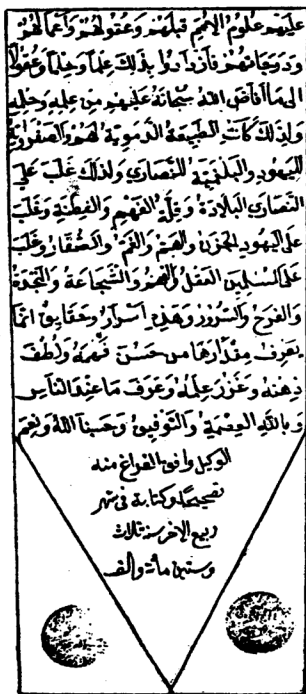 عليهم علوم الامم قبلهم وعقولهم واعمالهم
ودرجاتهم فازدادوا بذلك علما وحلما وعقولا
الى ما افاض الله سبحانه عليهم من علمه وحلمه
ولذلك كانت الطبيعة الدموية لهم والصفراوية
لليهود والبلغمية للنصارى ولذلك غلب على
النصارى البلادة وقلة الفهم والفطنة وغلب
على اليهود الحزن والهم والغم والصغار وغلب
على المسلمين العقل والفهم والشجاعة والنجدة
والفرح والسرور وهذه اسرار وحقايق انما
يعرف مقدارها من حسن فهمه ولطف
ذهنه وغزر علمه وعرف ما عند الناس
وبالله العصمة والتوفيق وحسبنا الله ونعم
الوكيل وافق الفراغ منه
تصحيحا وكتابة في شهر
ربيع الاخر سنة ثلاث
وستين ماة والف